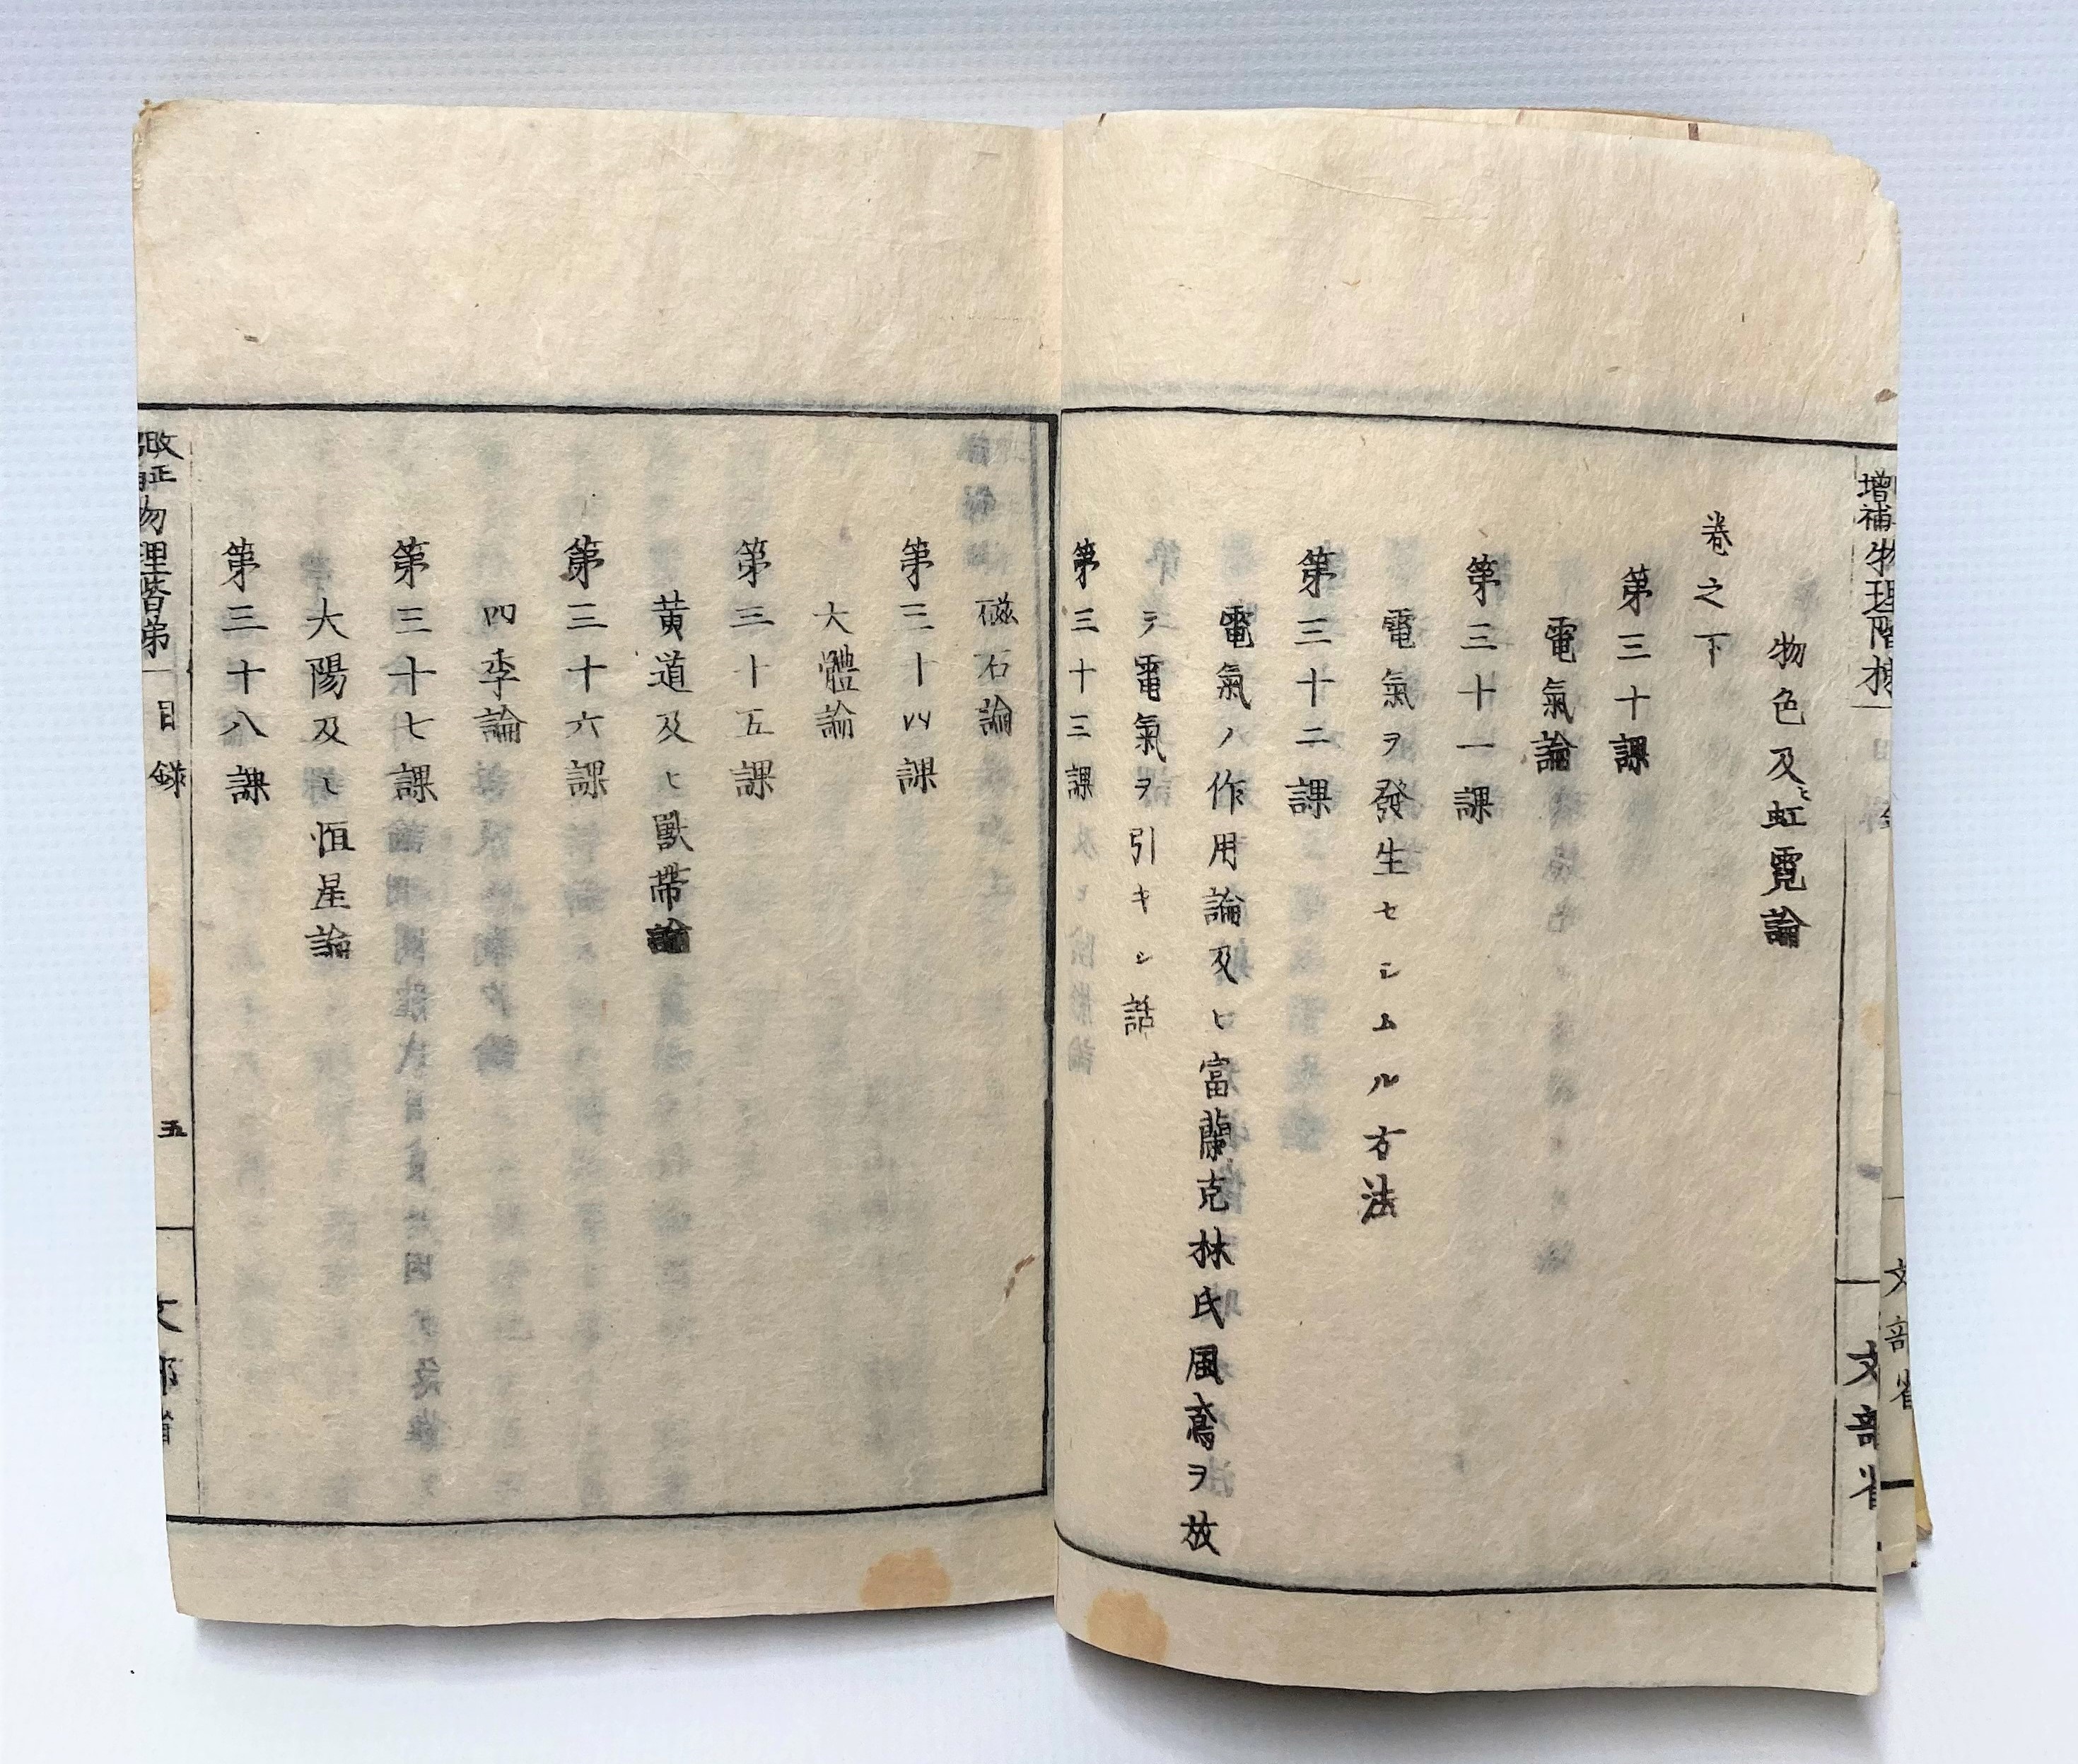 増補物理階梯
文部省
文部省
物色及ヒ虹霓論
巻之下
第三十課
電氣論
第三十一課
電氣ヲ發生セシムル方法
第三十二課
電氣ノ作用論及ヒ富蘭克林氏風鳶ヲ放
テ電氣ヲ引キシ話
第三十三課
磁石論
第三十四課
大體論
第三十五課
黄道及ヒ獸帯論
第三十六課
四季論
第三十七課
大陽及ヒ恒星論
第三十八課
改正
物理階梯
目錄
五
文部省